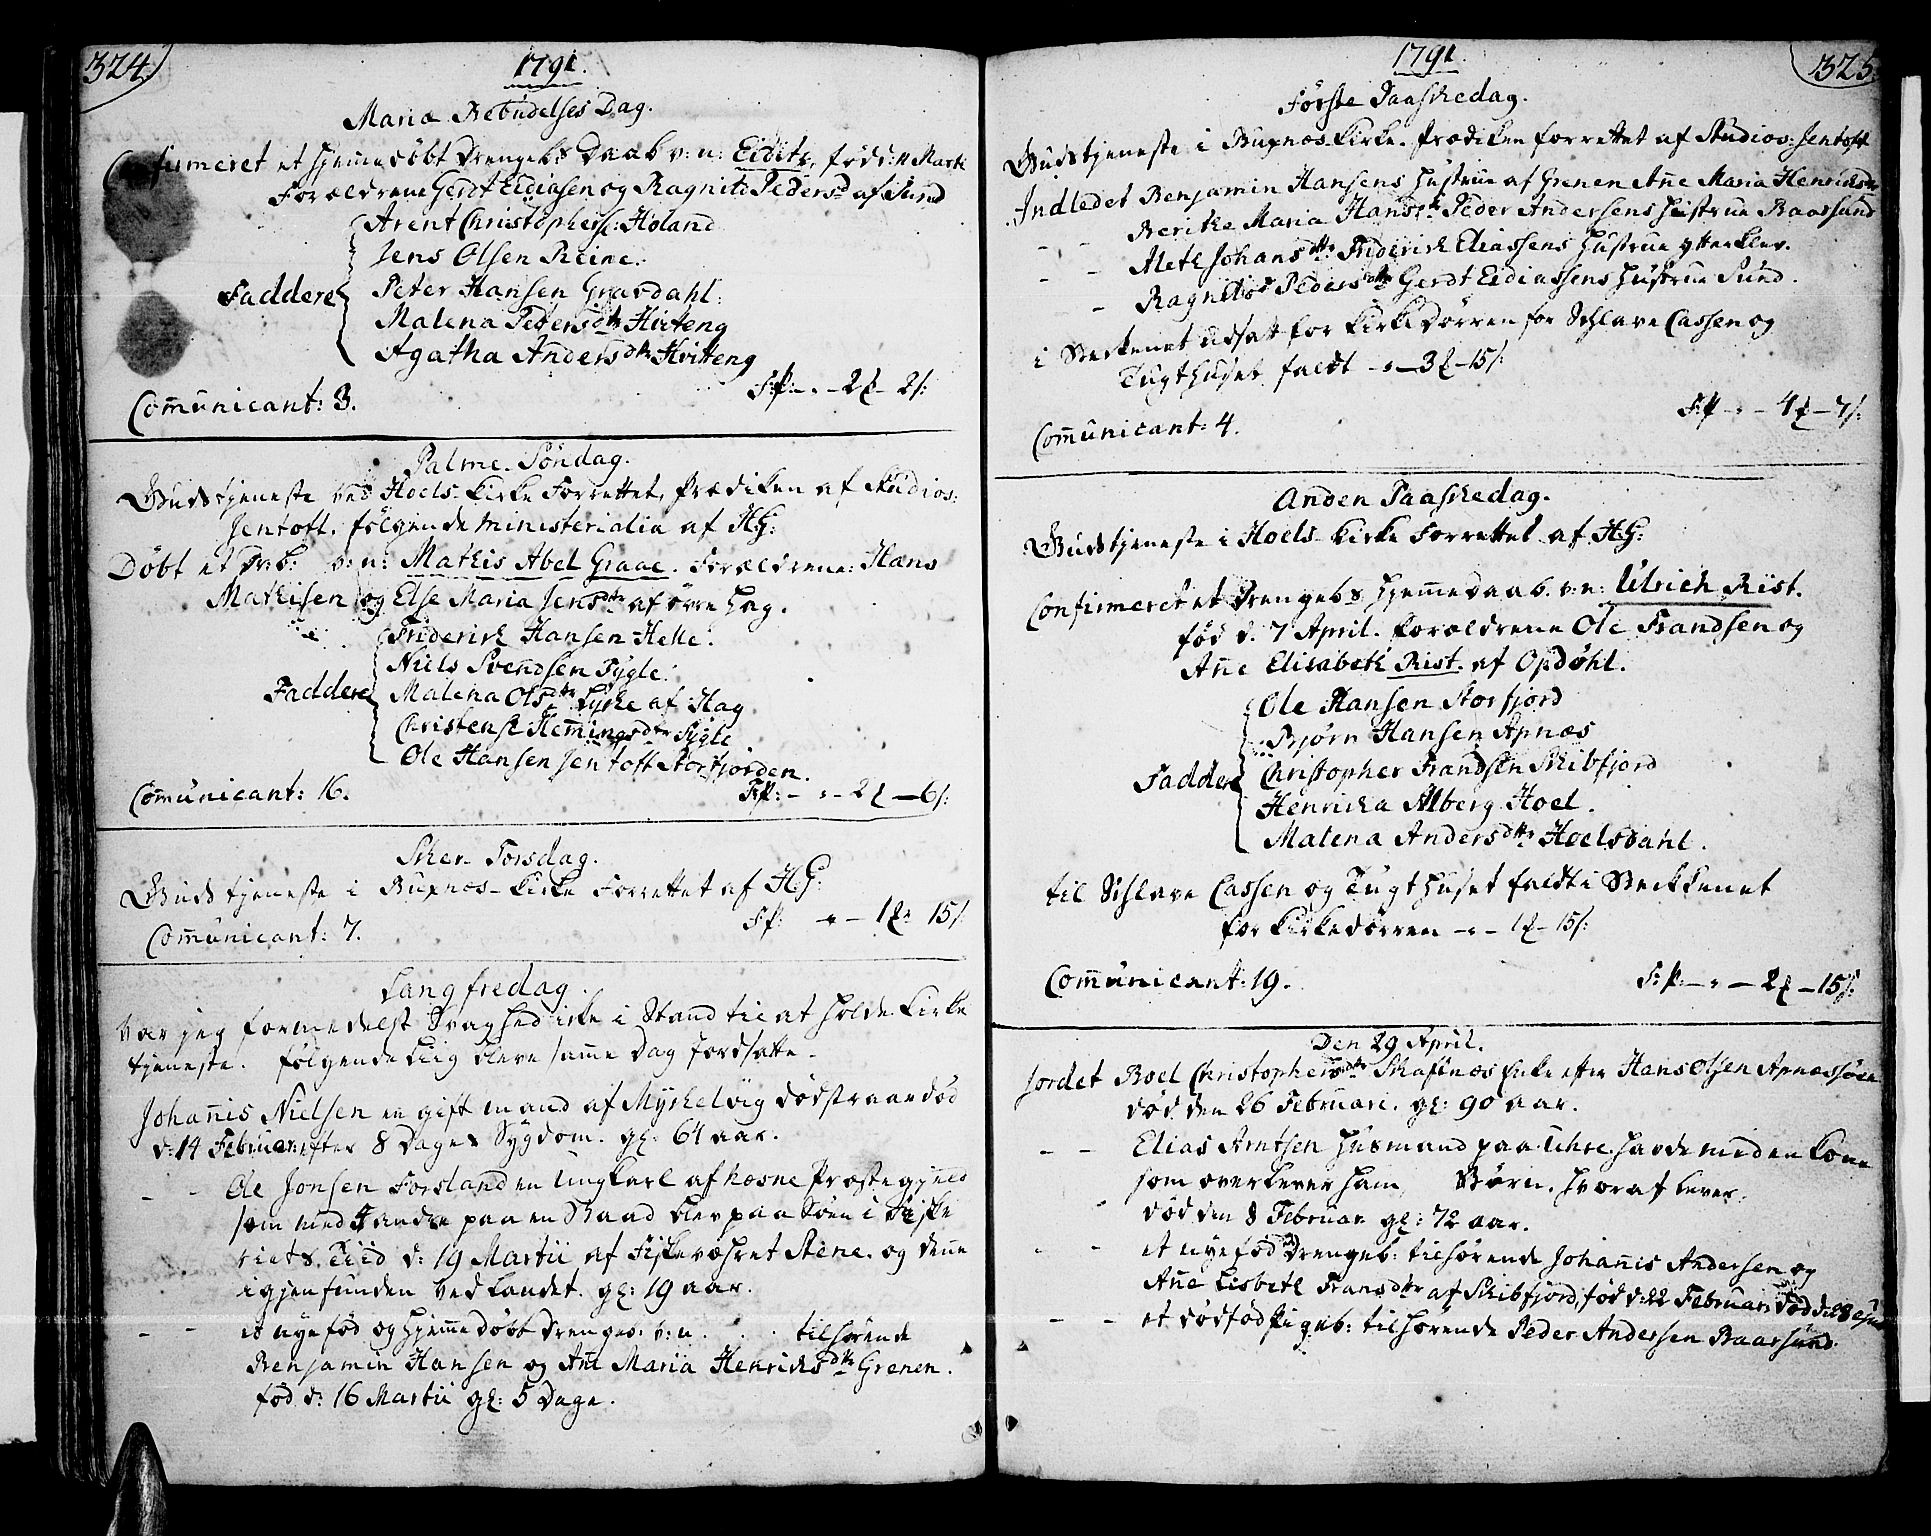 324
1791.
Mariæ Bebudelses Dag.
Confirmeret et hjemmedöbt Drengebs Daab v: n: Eidits, född: 11 Marti
Forældrene Gerdt Eidiasen og Ragnild Pedersd af Sund
Arent Christophers: Holand
Jens Olsen Reine.
Faddere Peter Hansen Gravdahl:
Malena Pedersdtr Hviteng
Agatha Andersdtr Hvitteng
F:P: - " - 2 - 2 /:
Com̄unicant: 3.
Palme-Söndag.
Gudstjeneste ved Hoels-Kirke Forrettet, Prædiken af Studios:
Jentoft. følgende ministerialia af HG:
Döbt et Dr:b: v: n: Mathis Abel Graae. Forældrene: Hans
Mathisen og Else Maria Jensdtr af övre Hag.
Friderich Hansen Helle:
Niels Svendsen Sygle:
Faddere Malena Olsdtr Pige af Hag
Christense Hemingsdtr Sygle
Ole Hansen Jentoft Storfjorden.
Com̄unicant: 16. F:P: - " - 2 - 6 /:
Skier-Torsdag.
Gudstjeneste i Buxnæs-Kirke Forrettet af H.G:
F:P: - " - 1 - 15 /:
Com̄unicant: 7.
Langfredag.
Var jeg formedelst Svaghed ikke i Stand til at holde Kirke
tjeneste. følgende Liig bleve sam̄e Dag Jordsatte.
Johañis Nielsen en gift mand af Myrkelvig dödstraandöd
d: 14 Februar: efter 8 Dages Sygdom. gl: 64 aar.
- - Ole Jonsen Forsland en Ungkarl af Næsne Præstegjeld
som med 4 andre paa en Baad blev paa Söen i Fiske
riets Tiid d: 19 Martii af Fiskeværet Stene. og deñe
igjenfunden ved Landet. gl: 19 aar.
- - et nyefød og hjem̄edöbt Drengeb: v: n . . . tilhørende
Benjamin Hansen og Añe Maria Henrichsdtr Grenen.
föd d: 16 Martii gl: 5 Dage.
325
1791.
Første Paaskedag.
Gudstjeneste i Buxnæs Kirke. Prædiken forrettet af Studios: Jentoft
Indledet Benjamin Hansens Hustrue af Grenen Añe Maria Henrichsdr
- - Berithe Maria Hansdtr Peder Andersens Hustrue Baarsund
- - Aleth Johansdtr Friderich Eliassens Hustrue ytterklev.
- Ragnild Pedersdtr Gerdt Eidiassens Hustrue Sund.
i Beckenet udsatt for Kirkedörren for Schlave Cassen og
Tugthuset faldt - " - 3 - 15 /:
F:P - " - 4 - 7 /:
Com̄unicant: 4.
Anden Paaskedag.
Gudstjeneste i Hoels-Kirke Forrettet af H.G:
Confirmeret et Drengebs hjem̄edaab. v: n: Ulrich Rist.
föd d. 7 April. forældrene Ole Frandsen og
Añe Elisabeth Rist. af Opdöhl.
Ole Hansen Storfjord
Bjørn Hansen Apnæs
Faddere Christopher Frandsen Skibfjord
Henricha Alberg Hoel.
Malena Andersdtr Hoelsdahl.
til Schlave Cassen og Tugthuset faldt i Beckkenet
for Kirkedörren - " - 1 - 15 /:
Com̄unicant: 19. F:P: - " - 2 - 15 /:
Den 29 April.
Jordet Boel Christophersdtr Skafsnæs Enke efter Hans Olsen Apnæssöen
död den 26 Februarii. gl: 90 aar.
- - Elias Arntsen Husmand paa Uhre havde med en Kone
som overlever ham, Börn. hvoraf lever.
död den 8 Februar. gl: 72 aar.
- - et nyefød Drengeb: tilhørende Johañis Andersen og
Añe Lisbeth Fransdtr af Skibfjord, född: 22 Februar. död d: 28
- - et dødfød Pigeb: tilhørende Peder Andersen Baarsund.